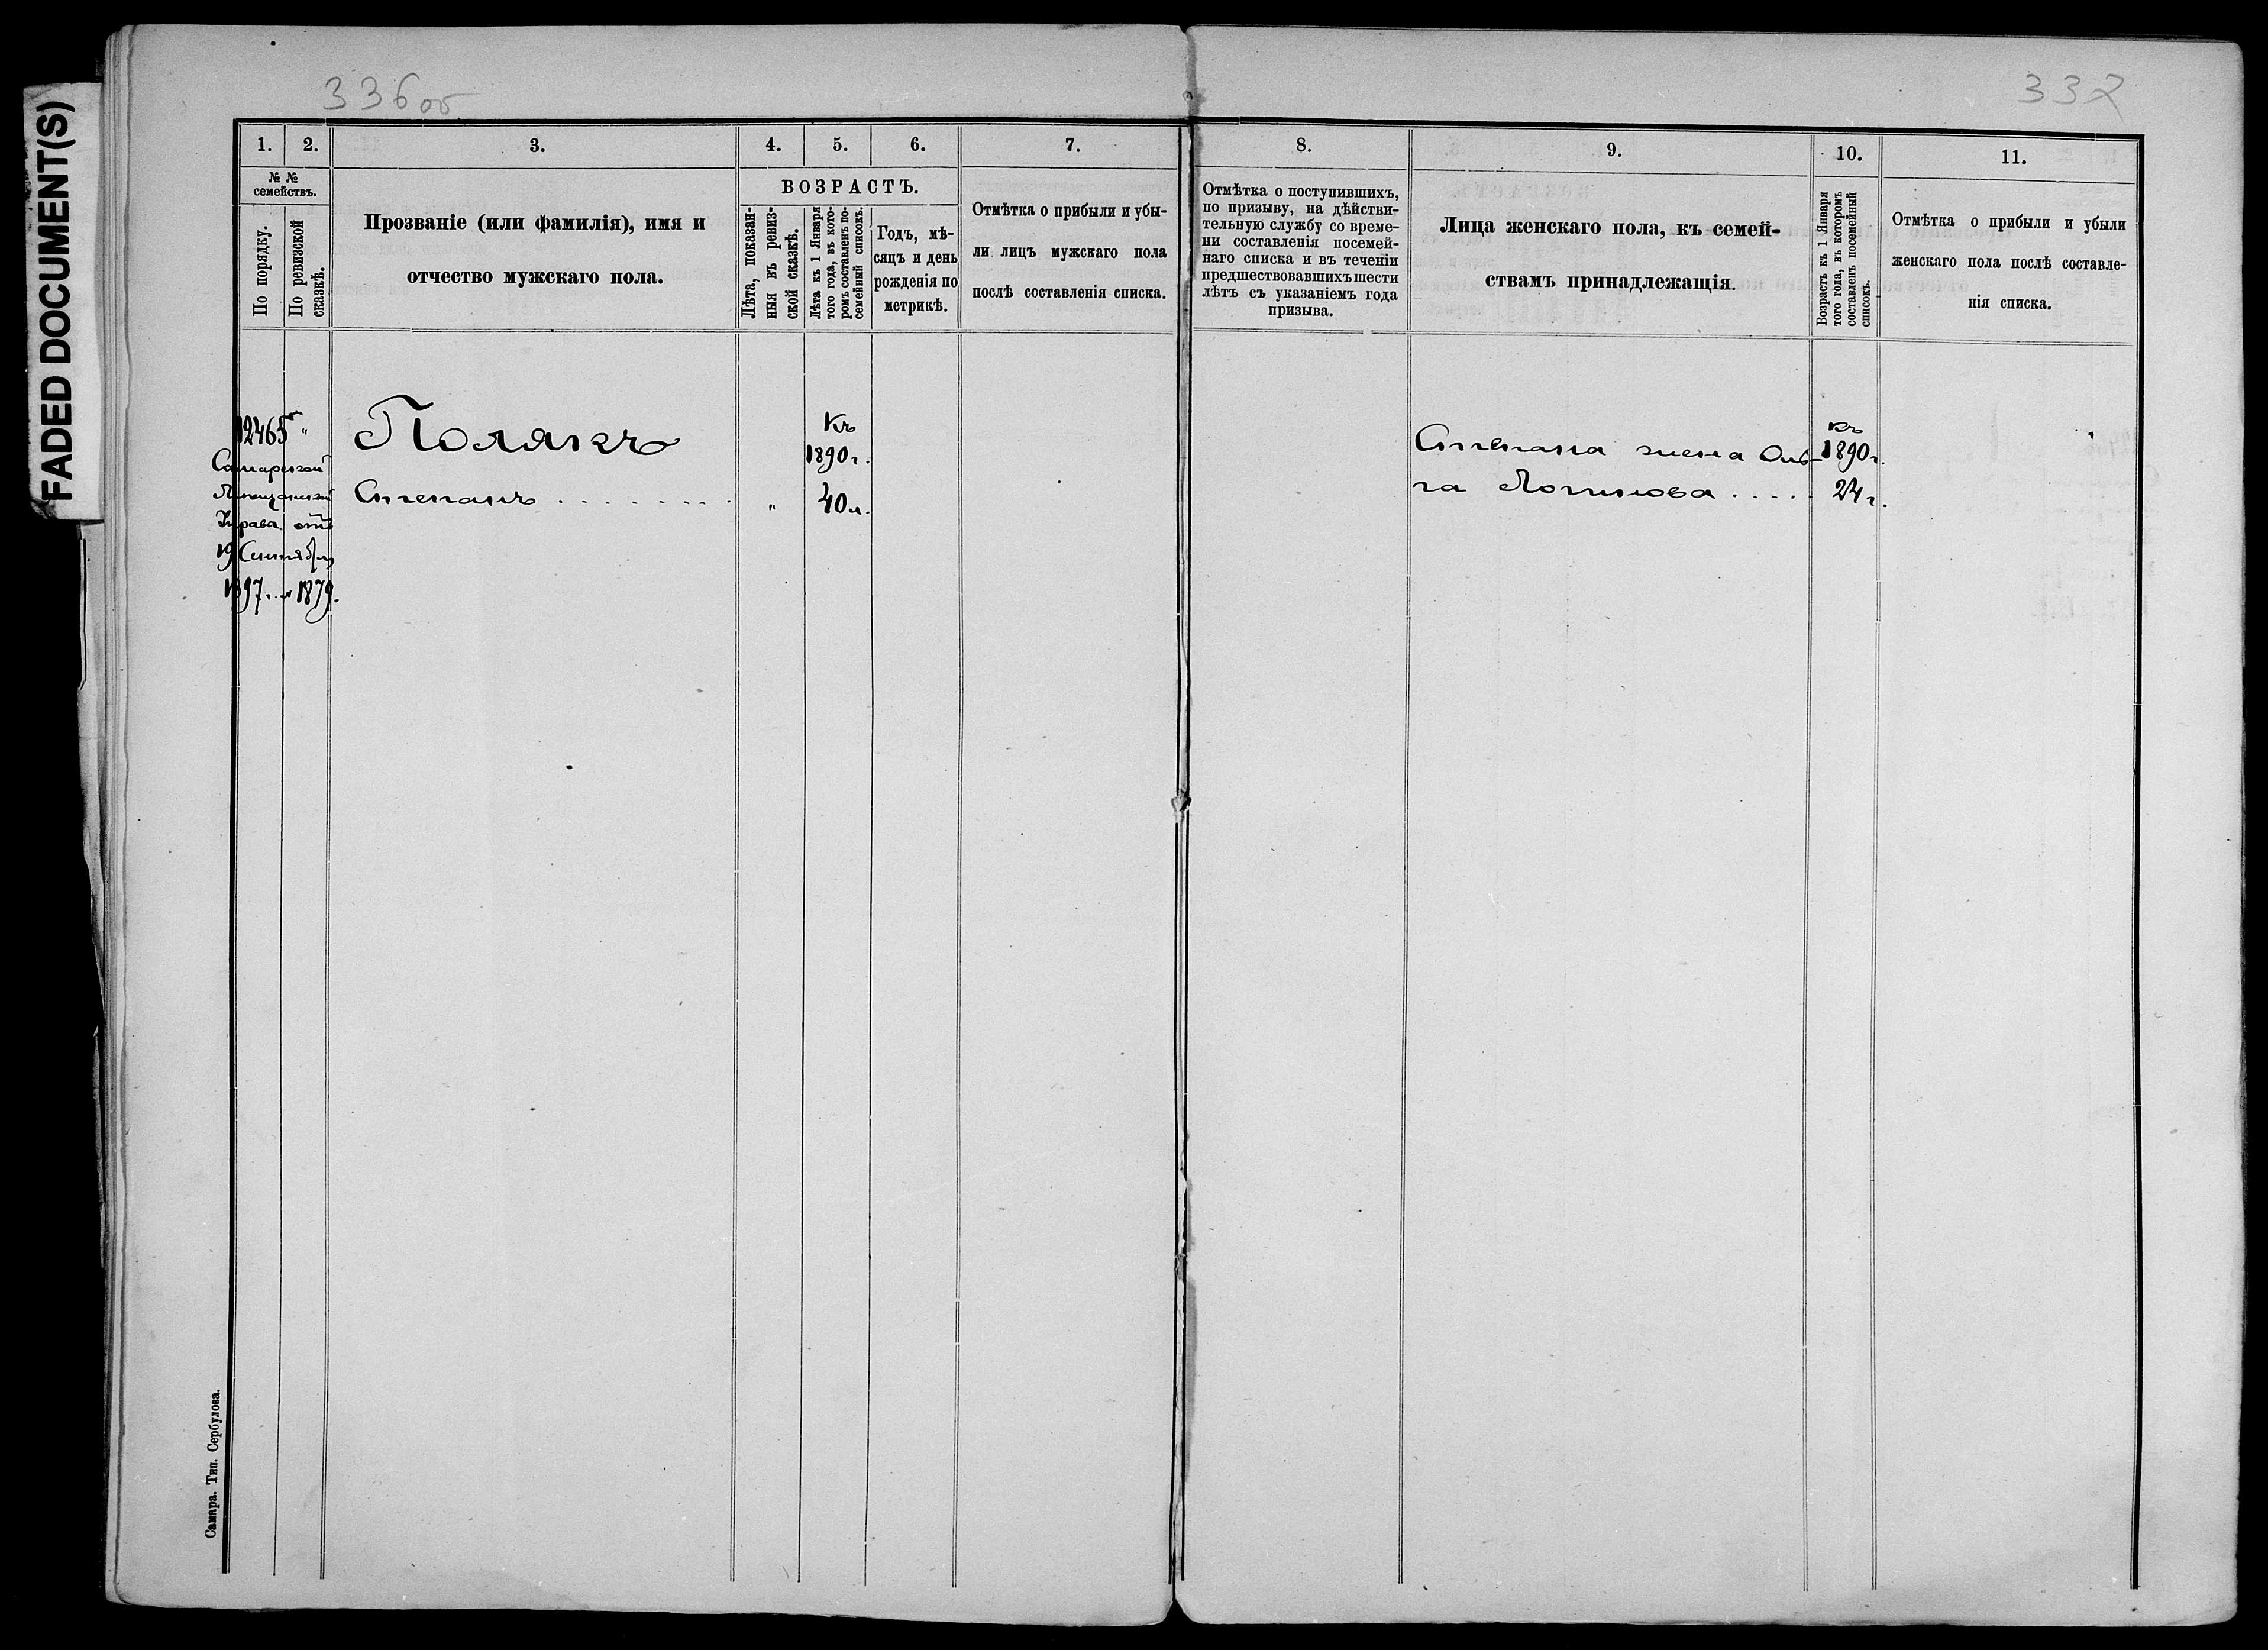 FADED DOCUMENT(S)
336об
332
1.
2.
3.
4.
5.
6.
7.
8.
9.
10.
11.
№ №
семействъ.
По порядку.
По ревизской
сказкѣ.
Прозваніе (или фамилія), имя и
отчество мужскаго пола.
ВОЗРАСТЪ.
Лѣта, показан-
ныя въ ревиз-
ской сказкѣ.
Лѣта къ 1 Января
того года, въ кото-
ромъ составленъ по-
семейный списокъ.
Годъ, мѣ-
сяцъ и день
рожденія по
метрикѣ.
Отмѣтка о прибыли и убы-
ли лицъ мужскаго пола
послѣ составленія списка.
Отмѣтка о поступившихъ,
по призыву, на дѣйстви-
тельную службу со време-
ни составленія посемей-
наго списка и въ теченіи
предшествовавшихъ шести
лѣтъ съ указаніемъ года
призыва.
Лица женскаго пола, къ семей-
ствамъ принадлежащія.
Возрастъ къ 1 Января
того года, въ которомъ
составленъ посемейный
списокъ.
Отмѣтка о прибыли и убыли
женскаго пола послѣ составле-
нія списка.
12465 "
Самарской
Мѣщанской
Управ. отъ
19 Сентября
1897 г. № 1879.
Полякъ
Степанъ . . . . . . . .
"
Къ
1890 г.
40 л.
Степана жена Оль-
га Логинова . . . . .
Къ
1890 г.
24 г.
Самара. Тип. Сербулова.